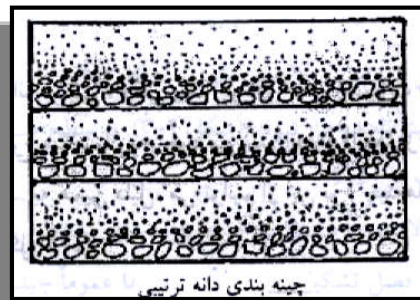 چینه بندی دانه ترتیبی